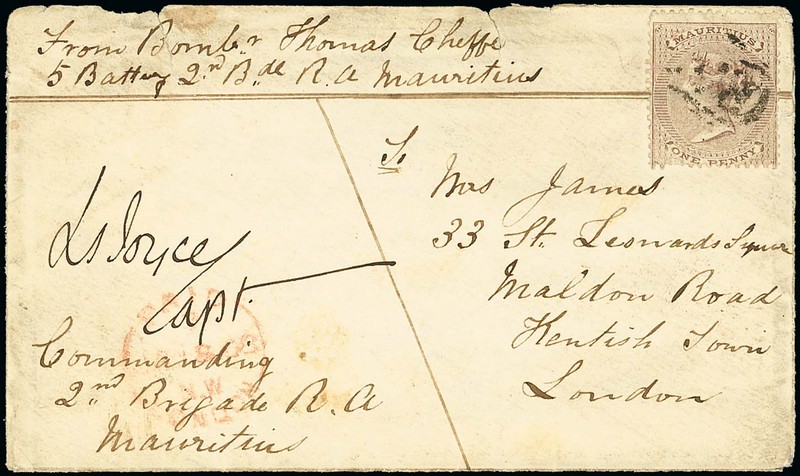 From Bombr Thomas Cheffe
5 Battery 2nd Bde R.A Mauritius
MAURITIUS
ONE PENNY
To
Mrs James
33 St. Leonards Square
Maldon Road
Kentish Town
London
Ls Joyce
Capt.
Commanding
2nd Brigade R.A
Mauritius